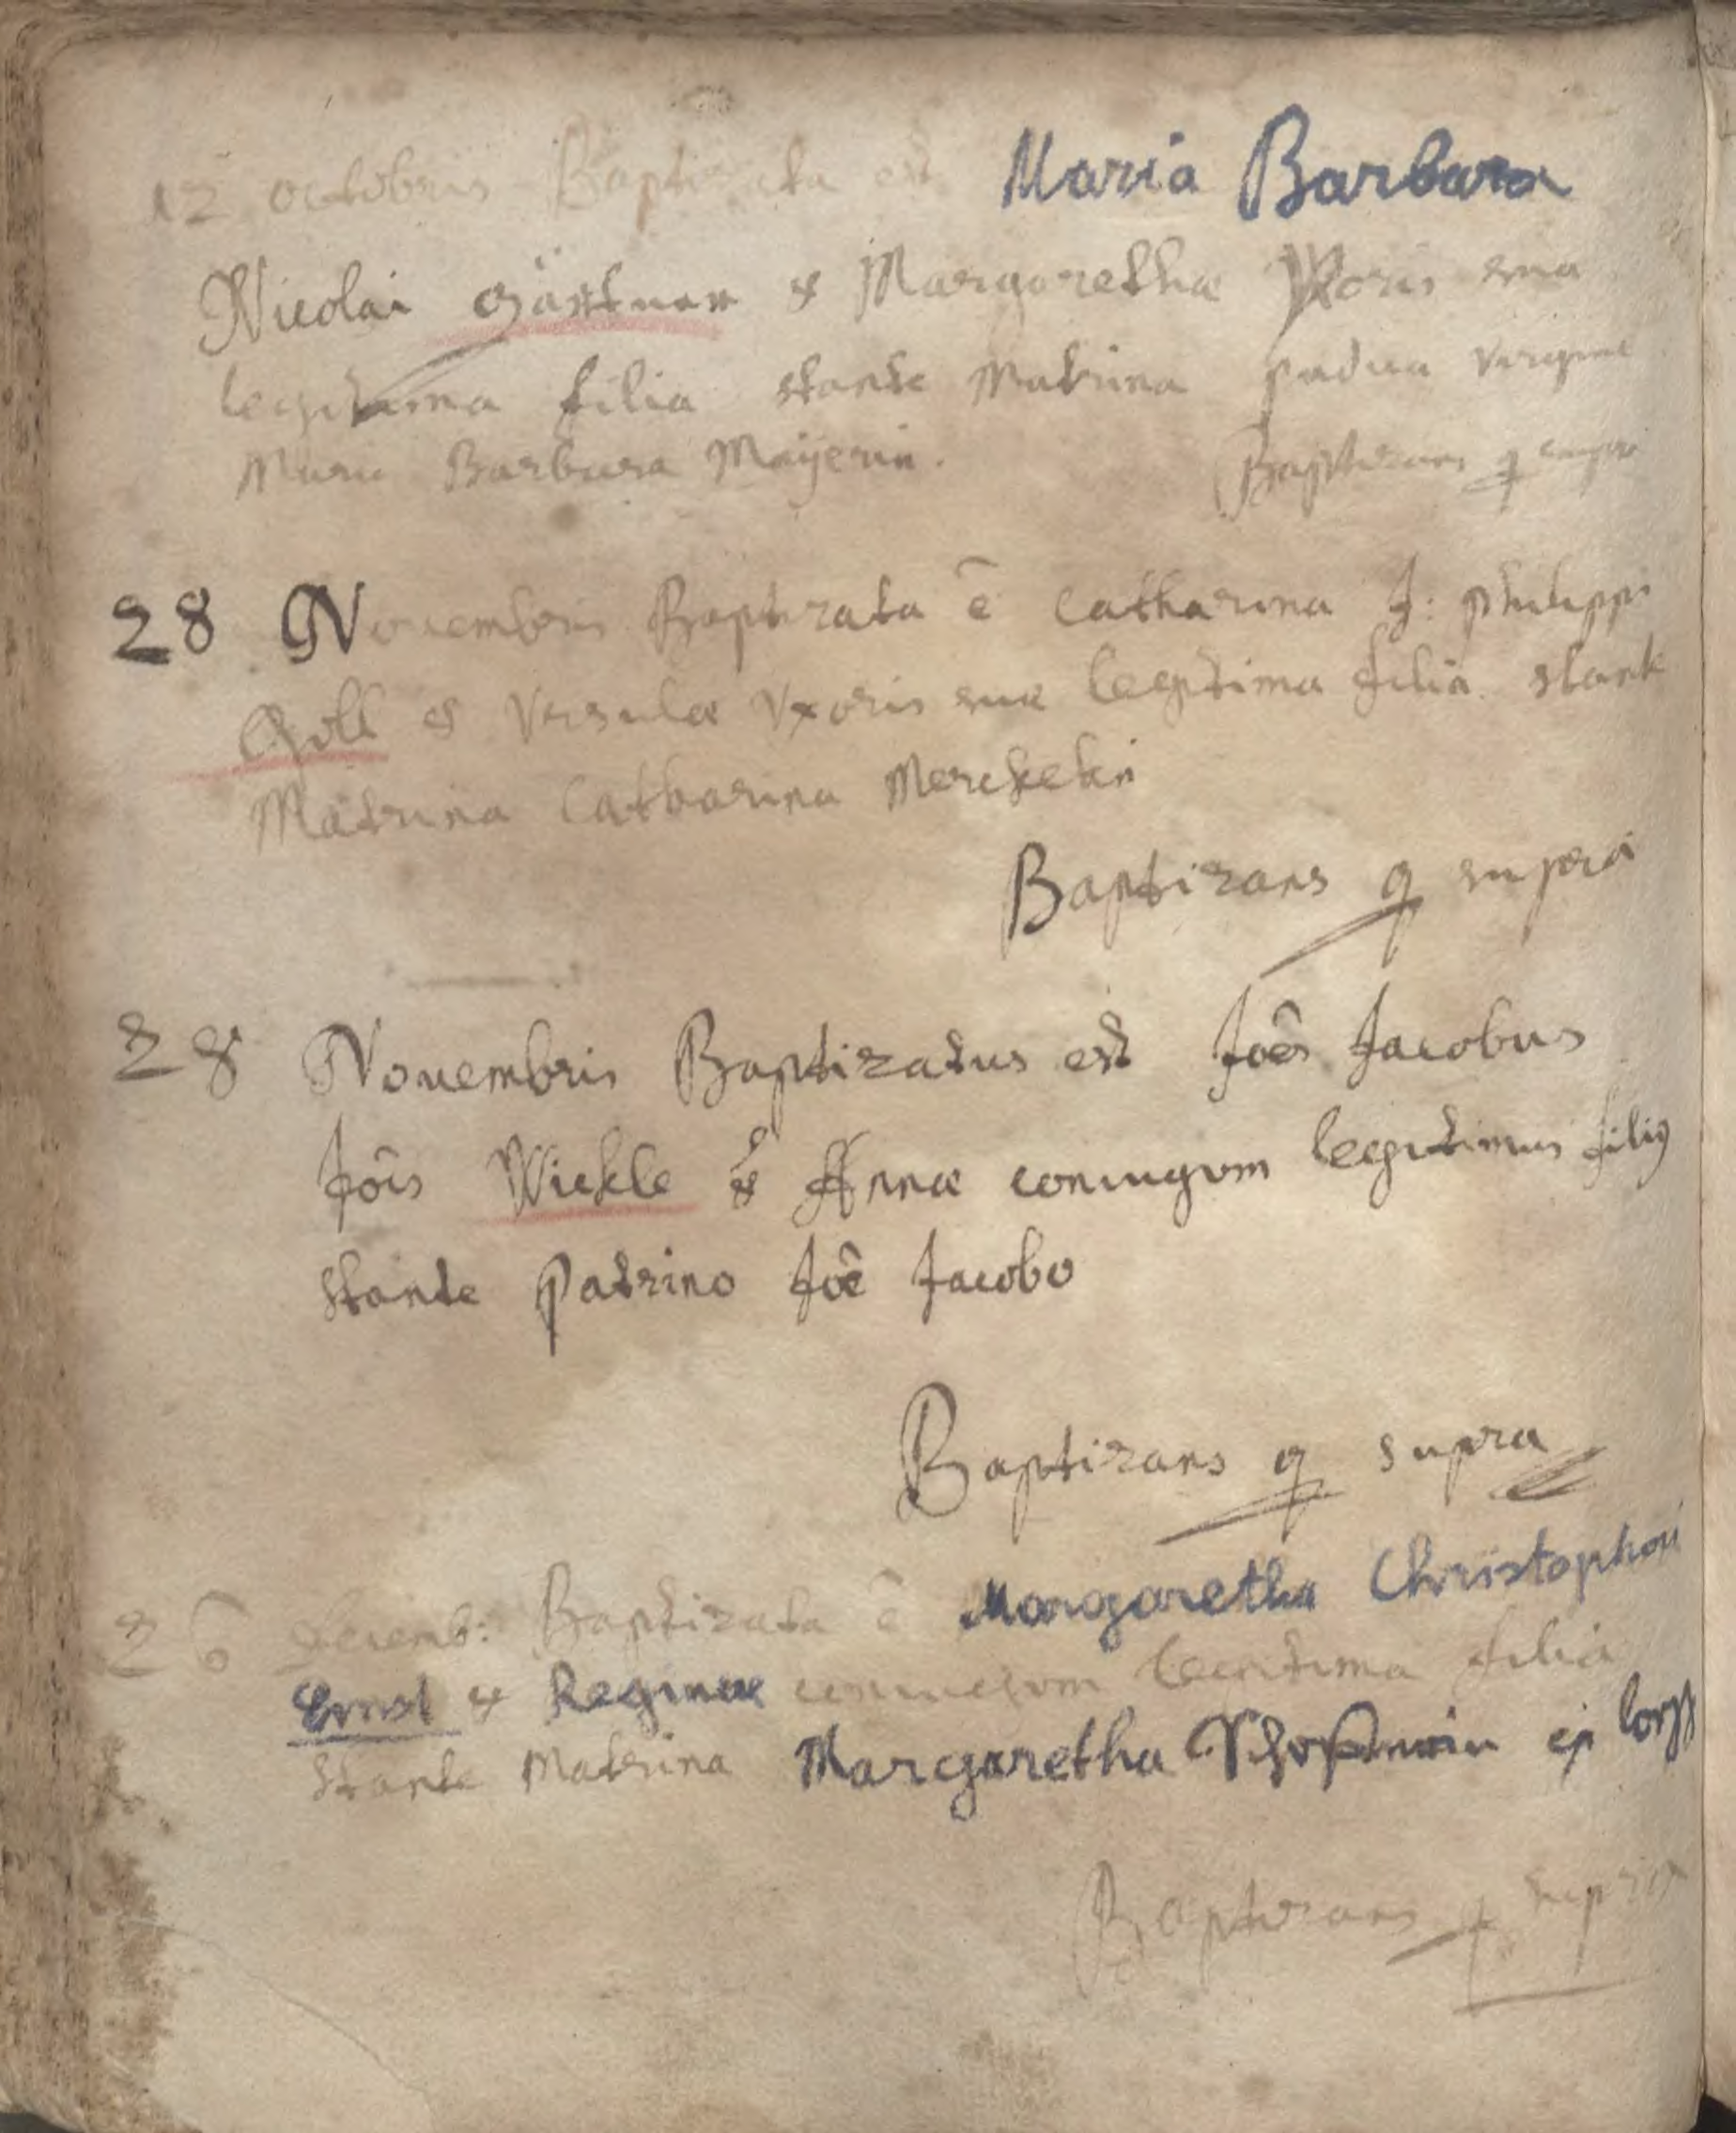 12 octobris Baptizata est Maria Barbara
Nicolai Gärtner & Margarethæ Vxoris suæ
legitima filia stante Matrina pudica virgine
Maria Barbara Mayerin. Baptizans q supra
28 Novembris Baptizata ē Catharina J: philippi
Goll & Vrsulæ Vxoris suæ legitima filia stante
Matrina Catharina Merckelin
Baptizans q supra
28 Nouembris Baptizatus est Joês Jacobus
Joîs Wickle & Annæ coniugvm legitimus filiꝰ
stante Patrino Joê Jacobo
Baptizans q supra
26 Decemb: Baptizata ē Margaretha Christophori
Ernst & Reginæ coniugvm legitima filia
stante Matrina Margaretha ex
Baptizans q supra